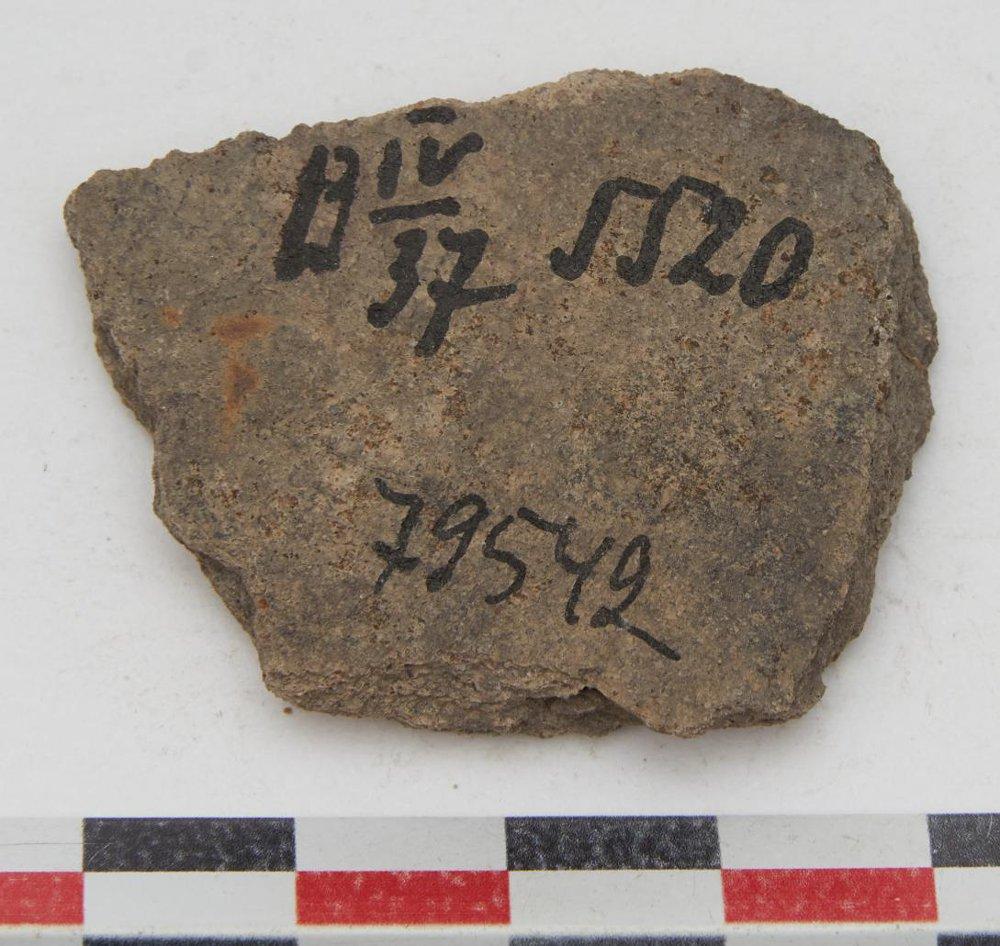 В IV/37 5520
79542